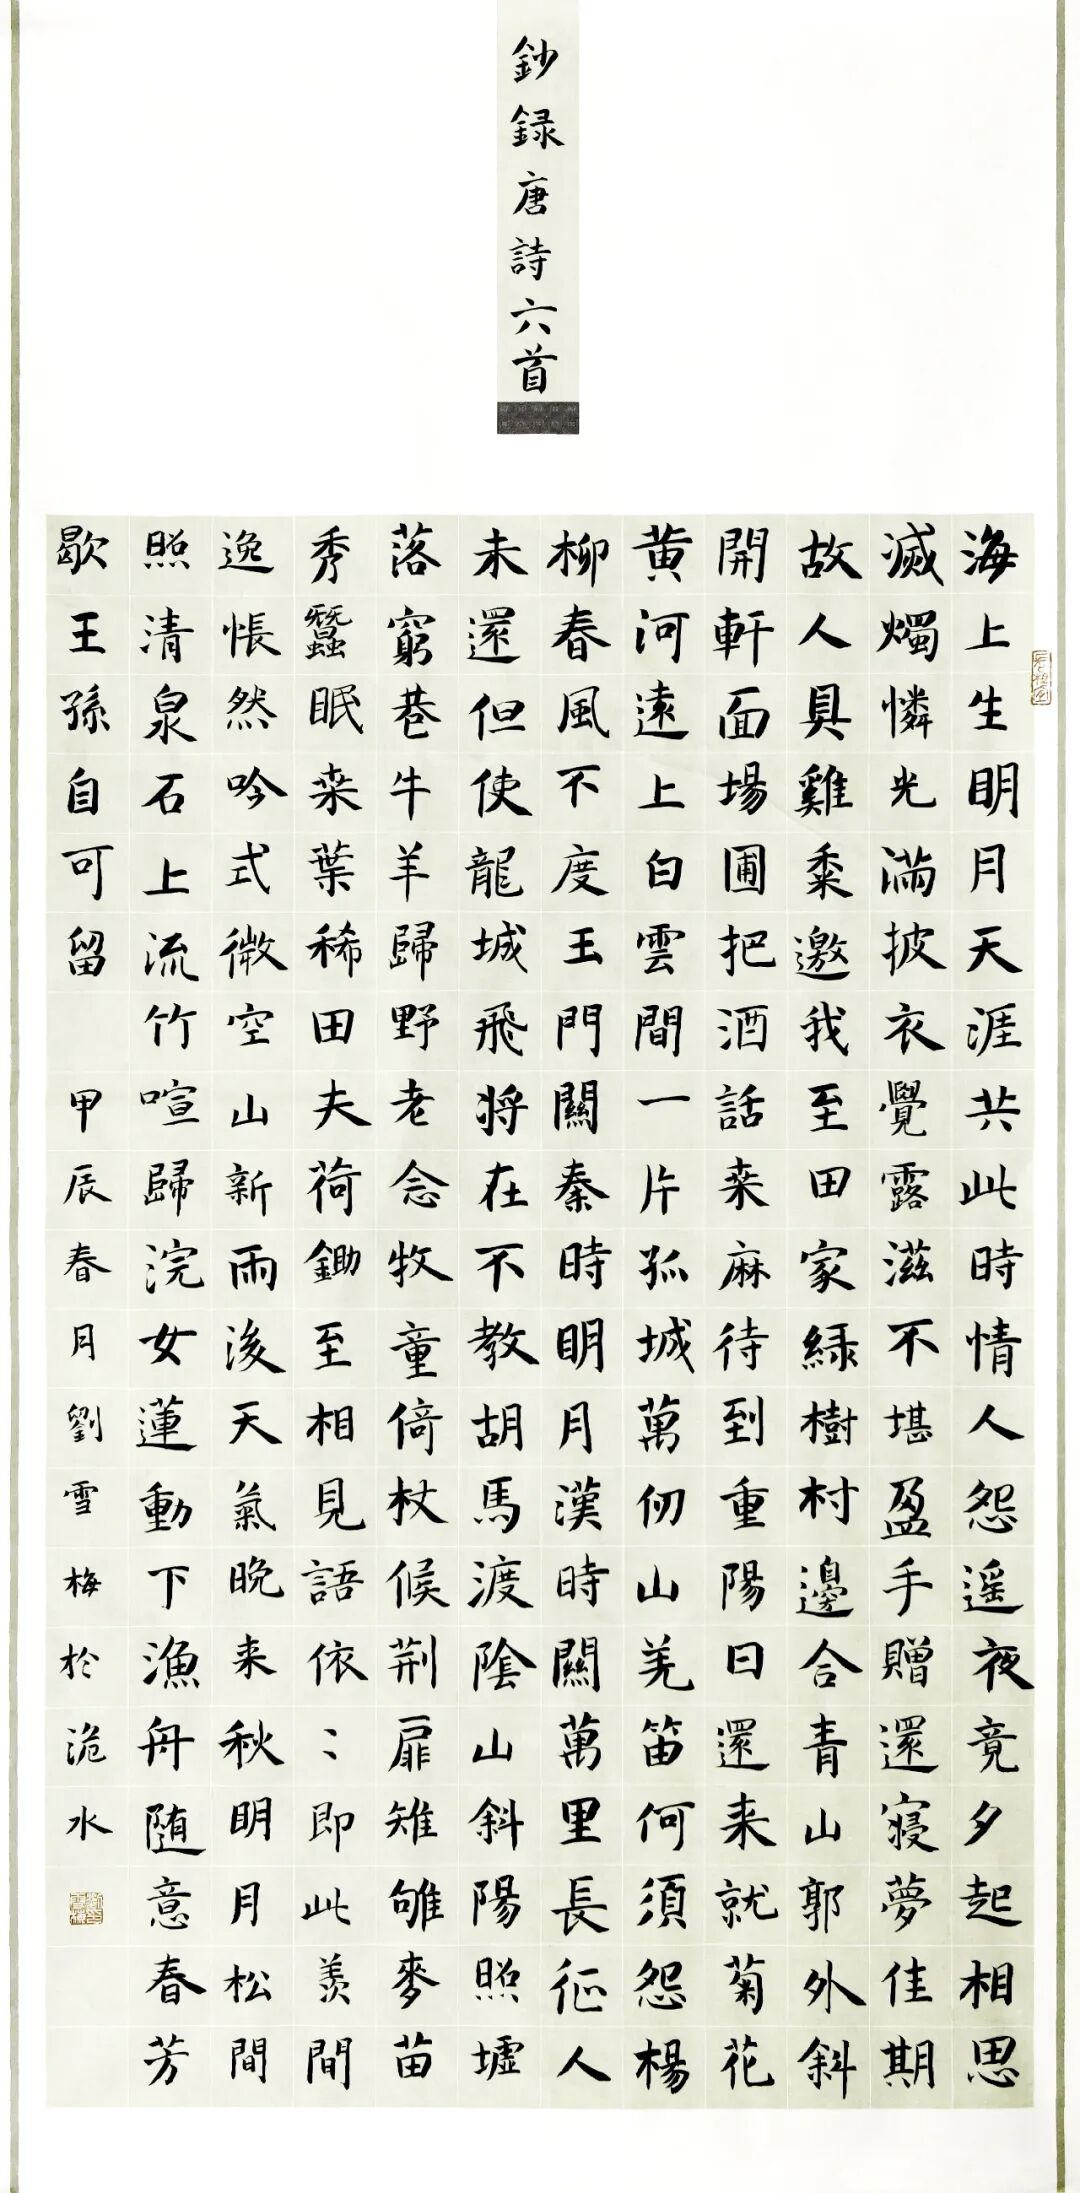 鈔録唐詩六首
海上生明月天涯共此時情人怨遥夜竟夕起相思
滅燭憐光滿披衣覺露滋不堪盈手贈還寢夢佳期
故人具雞黍邀我至田家緑樹村邊合青山郭外斜
開軒面場圃把酒話桒麻待到重陽日還来就菊花
黄河遠上白雲間一片孤城萬仞山羌笛何須怨楊
柳春風不度玉門關秦時明月漢時關萬里長征人
未還但使龍城飛将在不教胡馬渡陰山斜陽照墟
落窮巷牛羊歸野老念牧童倚杖候荆扉雉雊麥苗
秀蠶眠桒葉稀田夫荷鋤至相見語依〻即此羨間
逸悵然吟式微空山新雨後天氣晚来秋明月松間
照清泉石上流竹喧歸浣女蓮動下漁舟随意春芳
歇王孫自可留 甲辰春月劉雪梅於洈水